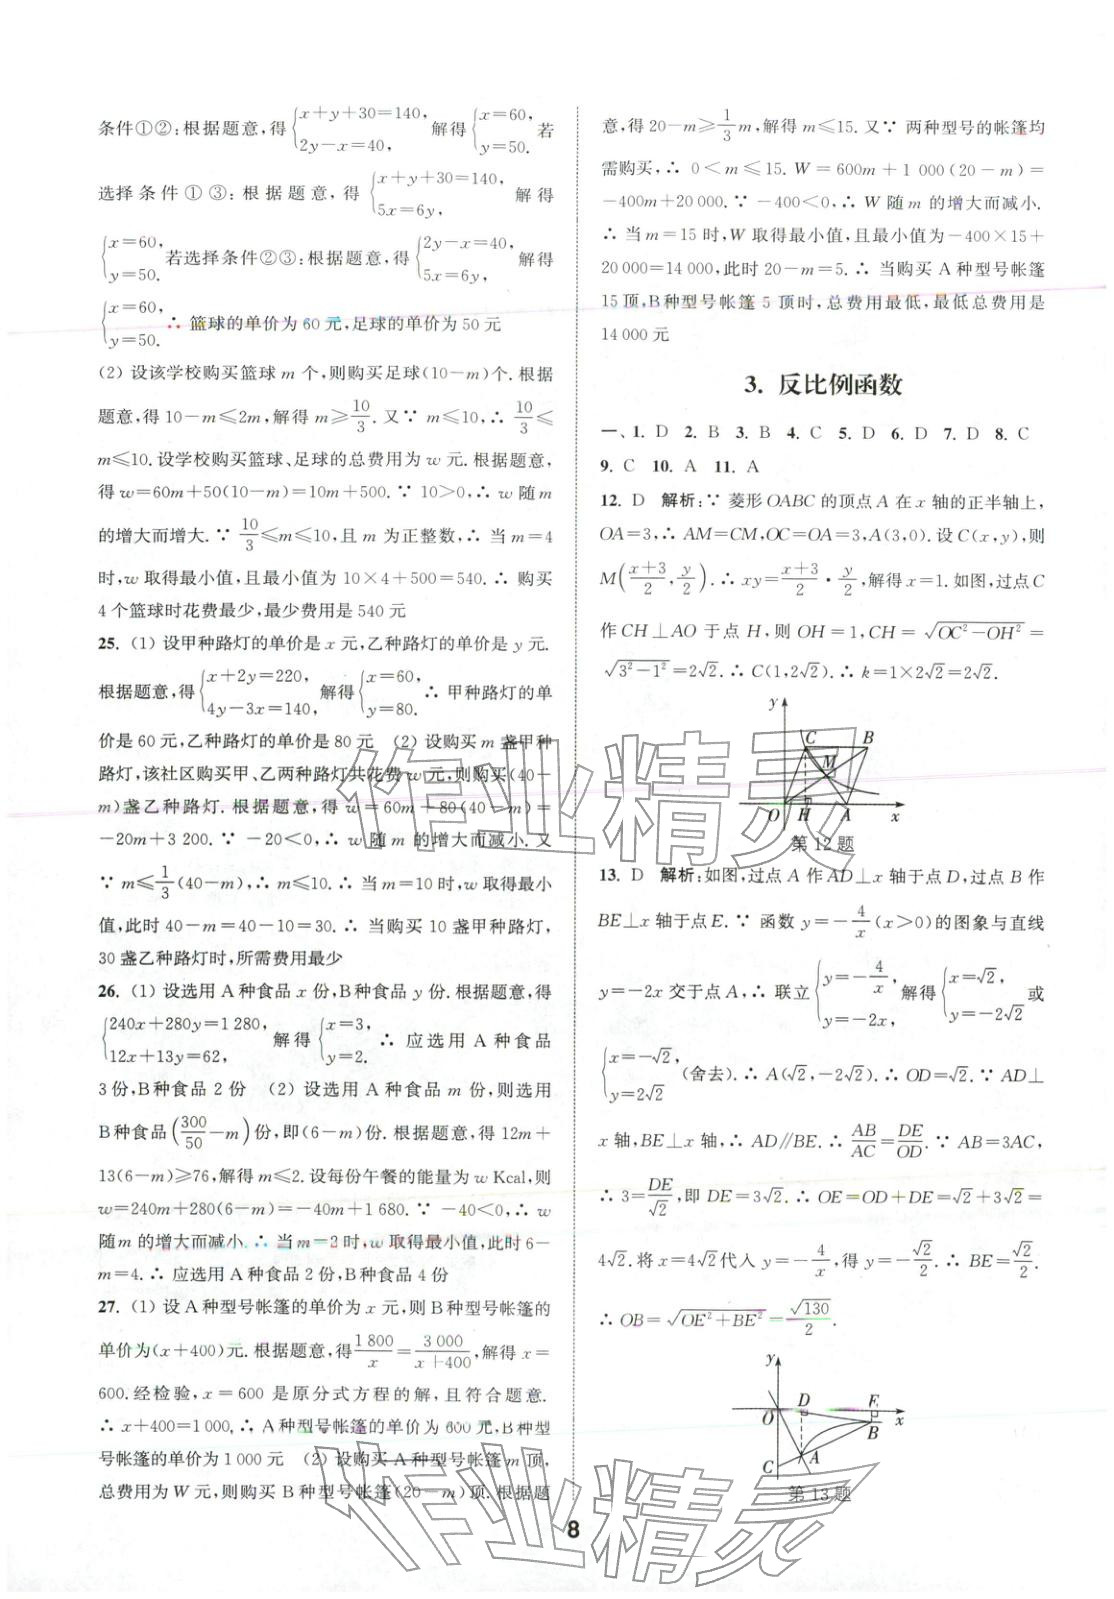 条件①②:根据题意,得{x+y+30=140, 2y-x=40, 解得{x=60, y=50. 若
选择条件①③:根据题意,得{x+y+30=140, 5x=6y, 解得
{x=60, y=50. 若选择条件②③:根据题意,得{2y-x=40, 5x=6y, 解得
{x=60, y=50. ∴ 篮球的单价为 60 元,足球的单价为 50 元
(2) 设该学校购买篮球 m 个,则购买足球(10-m)个. 根据
题意,得 10-m≤2m,解得 m≥10/3. 又∵ m≤10,∴ 10/3≤
m≤10. 设学校购买篮球、足球的总费用为 w 元. 根据题意,
得 w=60m+50(10-m)=10m+500. ∵ 10>0,∴ w 随 m
的增大而增大. ∵ 10/3≤m≤10,且 m 为正整数,∴ 当 m=4
时,w 取得最小值,且最小值为 10×4+500=540. ∴ 购买
4 个篮球时花费最少,最少费用是 540 元
25. (1) 设甲种路灯的单价是 x 元,乙种路灯的单价是 y 元.
根据题意,得{x+2y=220, 4y-3x=140, 解得{x=60, y=80. ∴ 甲种路灯的单
价是 60 元,乙种路灯的单价是 80 元 (2) 设购买 m 盏甲种
路灯,该社区购买甲、乙两种路灯共花费 w 元,则购买(40-
m)盏乙种路灯. 根据题意,得 w=60m+80(40-m)=
-20m+3 200. ∵ -20<0,∴ w 随 m 的增大而减小. 又
∵ m≤1/3(40-m),∴ m≤10. ∴ 当 m=10 时,w 取得最小
值,此时 40-m=40-10=30. ∴ 当购买 10 盏甲种路灯,
30 盏乙种路灯时,所需费用最少
26. (1) 设选用 A 种食品 x 份,B 种食品 y 份. 根据题意,得
{240x+280y=1 280, 12x+13y=62, 解得{x=3, y=2. ∴ 应选用 A 种食品
3 份,B 种食品 2 份 (2) 设选用 A 种食品 m 份,则选用
B 种食品(300/50-m)份,即(6-m)份. 根据题意,得 12m+
13(6-m)≥76,解得 m≤2. 设每份午餐的能量为 w Kcal,则
w=240m+280(6-m)=-40m+1 680. ∵ -40<0,∴ w
随 m 的增大而减小. ∴ 当 m=2 时,w 取得最小值,此时 6-
m=4. ∴ 应选用 A 种食品 2 份,B 种食品 4 份
27. (1) 设 A 种型号帐篷的单价为 x 元,则 B 种型号帐篷的
单价为(x+400)元. 根据题意,得1 800/x=3 000/(x+400),解得 x=
600. 经检验,x=600 是原分式方程的解,且符合题意.
∴ x+400=1 000,∴ A 种型号帐篷的单价为 600 元,B 种型
号帐篷的单价为 1 000 元 (2) 设购买 A 种型号帐篷 m 顶,
总费用为 W 元,则购买 B 种型号帐篷(20-m)顶. 根据题
意,得 20-m≥1/3m,解得 m≤15. 又∵ 两种型号的帐篷均
需购买,∴ 0<m≤15. W=600m+1 000(20-m)=
-400m+20 000. ∵ -400<0,∴ W 随 m 的增大而减小.
∴ 当 m=15 时,W 取得最小值,且最小值为-400×15+
20 000=14 000,此时 20-m=5. ∴ 当购买 A 种型号帐篷
15 顶,B 种型号帐篷 5 顶时,总费用最低,最低总费用是
14 000 元
3. 反比例函数
一、1. D 2. B 3. B 4. C 5. D 6. D 7. D 8. C
9. C 10. A 11. A
12. D 解析:∵ 菱形 OABC 的顶点 A 在 x 轴的正半轴上,
OA=3,∴ AM=CM,OC=OA=3,A(3,0). 设 C(x,y),则
M((x+3)/2,y/2). ∴ xy=(x+3)/2·y/2,解得 x=1. 如图,过点 C
作 CH⊥AO 于点 H,则 OH=1,CH=√(OC²-OH²)=
√(3²-1²)=2√2. ∴ C(1,2√2). ∴ k=1×2√2=2√2.
y
C B
M
O H A x
第 12 题
13. D 解析:如图,过点 A 作 AD⊥x 轴于点 D,过点 B 作
BE⊥x 轴于点 E. ∵ 函数 y=-4/x(x>0)的图象与直线
y=-2x 交于点 A,∴ 联立{y=-4/x, y=-2x, 解得{x=√2, y=-2√2 或
{x=-√2, y=2√2 (舍去). ∴ A(√2,-2√2). ∴ OD=√2. ∵ AD⊥
x 轴,BE⊥x 轴,∴ AD∥BE. ∴ AB/AC=DE/OD. ∵ AB=3AC,
∴ 3=DE/√2,即 DE=3√2. ∴ OE=OD+DE=√2+3√2=
4√2. 将 x=4√2代入 y=-4/x,得 y=-√2/2. ∴ BE=√2/2.
∴ OB=√(OE²+BE²)=√130/2.
y
O D E x
B
A
C
第 13 题
8
作业精灵
作业精灵